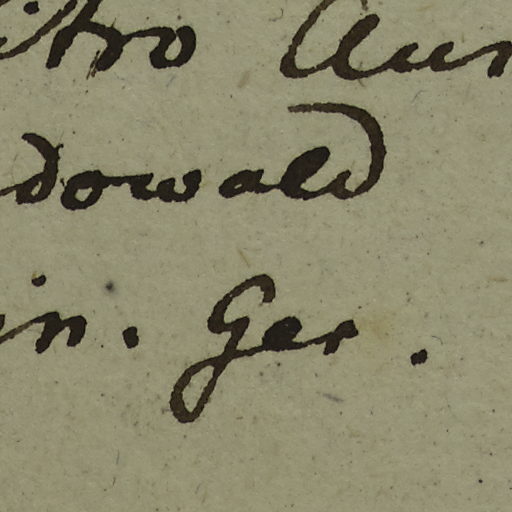 itro Aur
dowald
in. Ger.